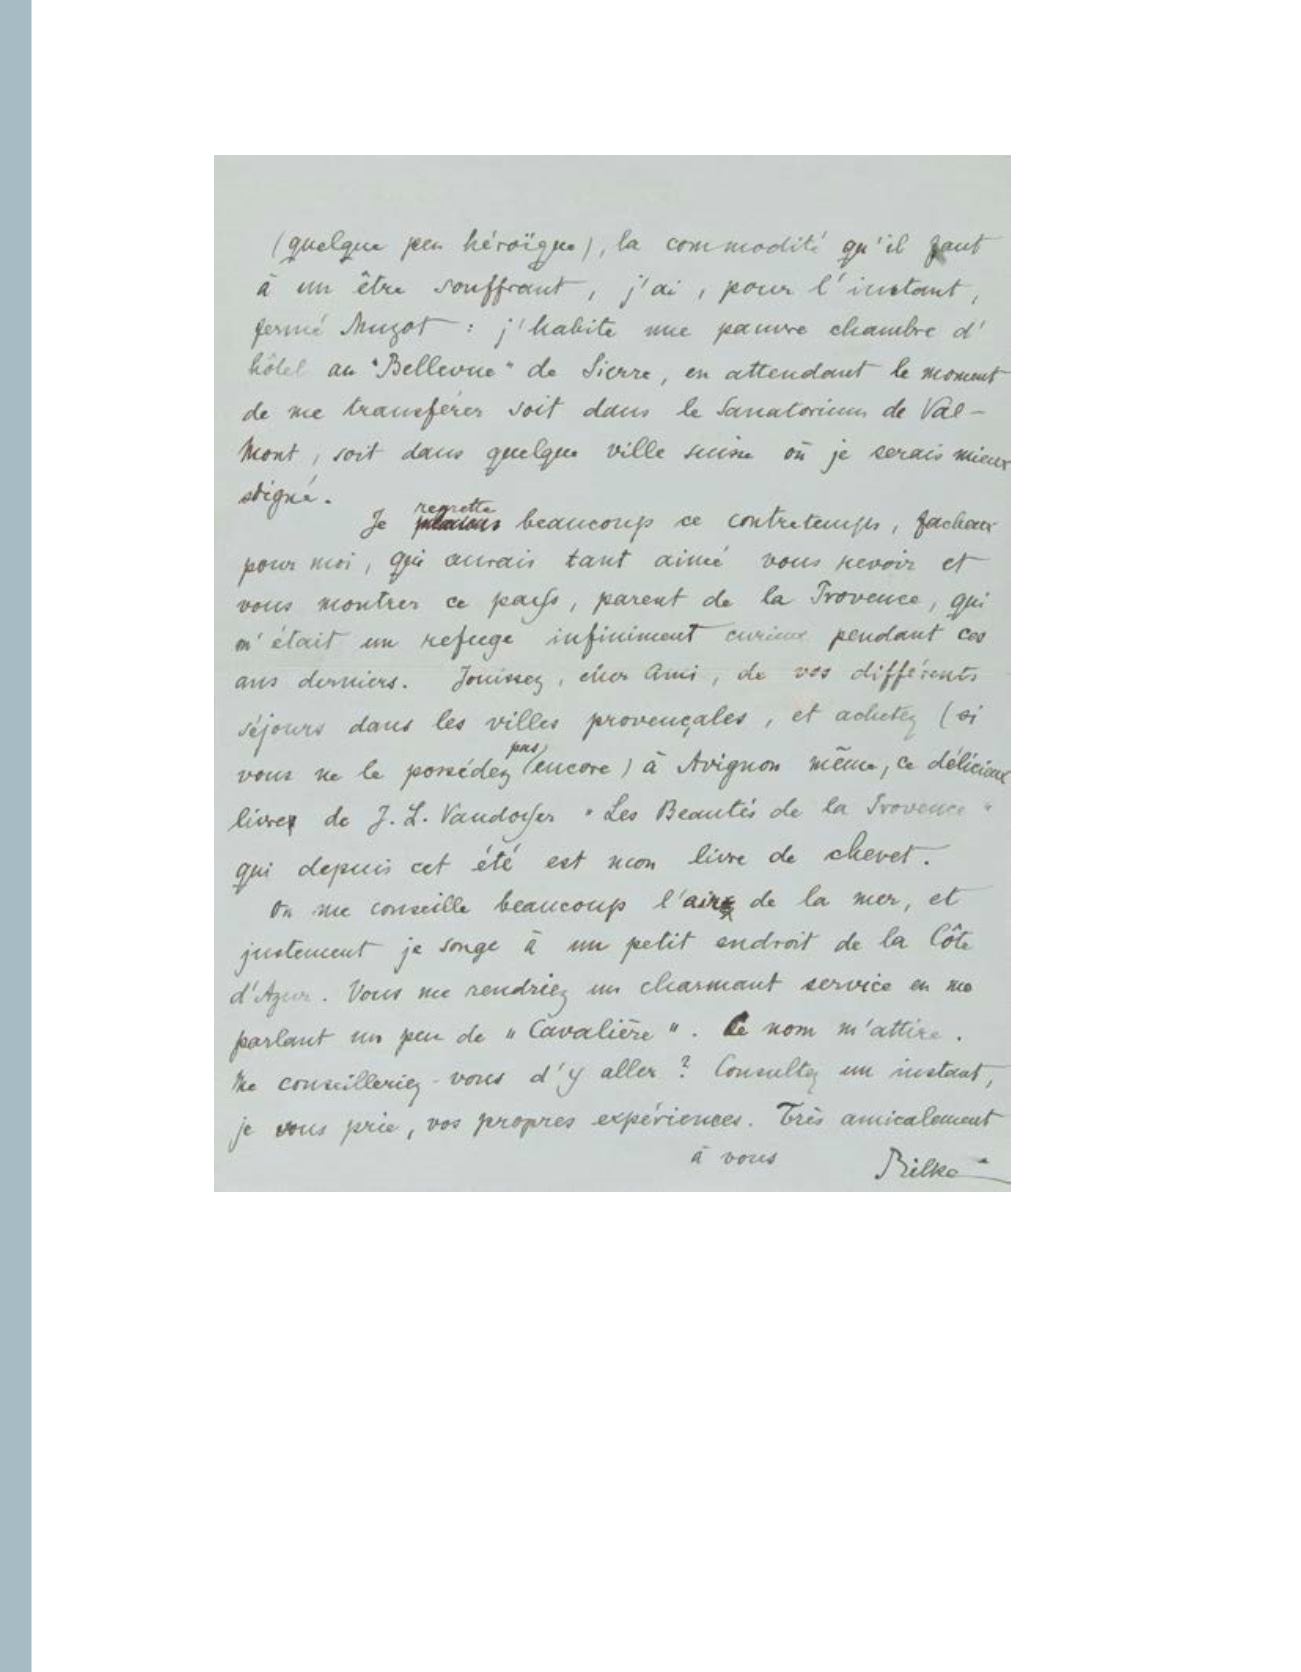 (quelque peu héroïque), la commodité qu'il faut
à un être souffrant, j'ai, pour l'instant,
fermé Muzot : j'habite une pauvre chambre d'
hôtel au "Bellevue" de Sierre, en attendant le moment
de me transférer soit dans le Sanatorium de Val-
Mont, soit dans quelque ville suisse où je serais mieux
soigné.
regrette
Je beaucoup ce contretemps, facheux
pour moi, qui aurais tant aimé vous revoir et
vous montrer ce pays, parent de la Provence, qui
m'était un refuge infiniment curieux pendant ces
ans derniers. Jouissez, cher Ami, de vos différents
séjours dans les villes provençales, et achetez (si
pas
vous ne le possédez (encore) à Avignon même, ce délicieux
livre de J. L. Vaudoyer "Les Beautés de la Provence"
qui depuis cet été est mon livre de chevet.
On me conseille beaucoup l'air de la mer, et
justement je songe à un petit endroit de la Côte
d'Azur. Vous me rendriez un charmant service en me
parlant un peu de "Cavalière". Ce nom m'attire.
Me conseilleriez-vous d'y aller ? Consultez un instant,
je vous prie, vos propres expériences. Très amicalement
à vous
Rilke